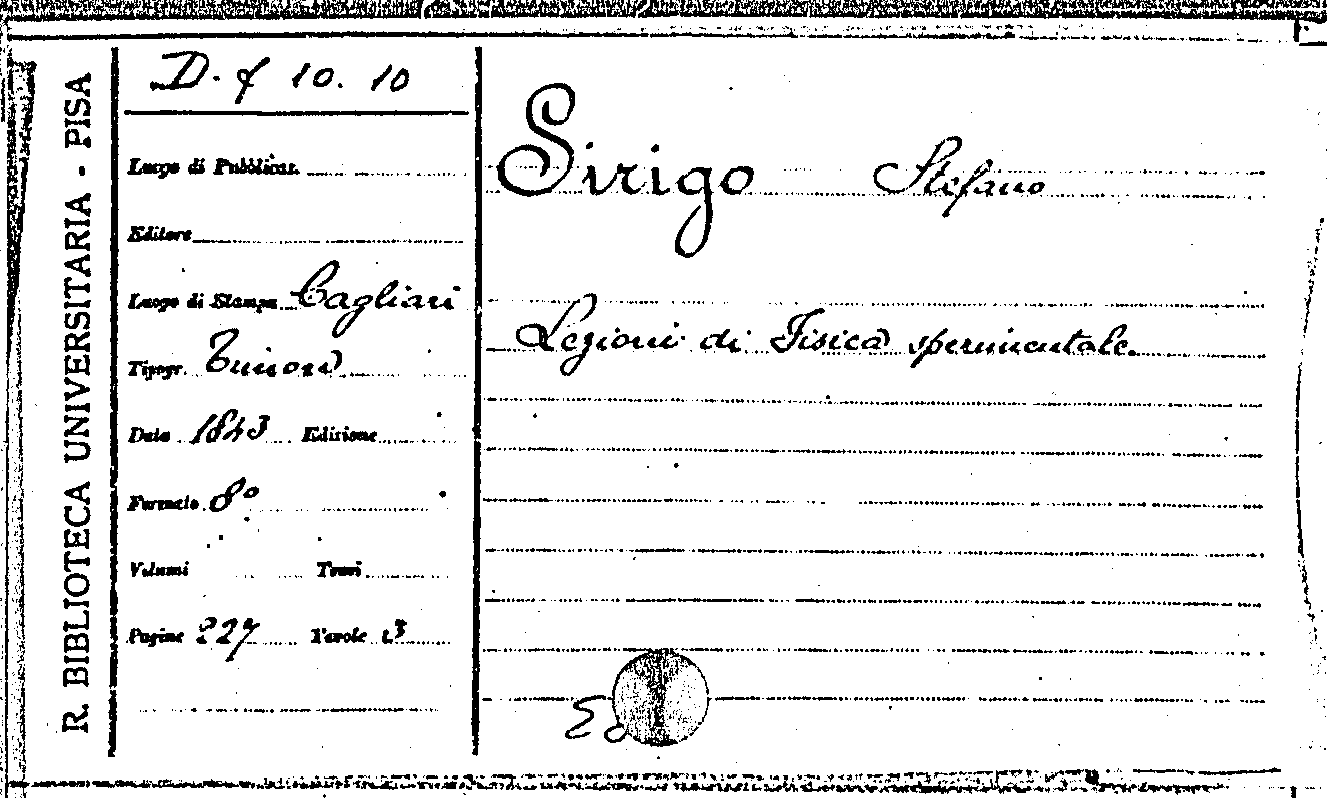 R. BIBLIOTECA UNIVERSITARIA - PISA
D. f 10. 10
Luogo di Pubblicaz.
Editore
Luogo di Stampa Cagliari
Tipogr. Timon
Data 1843 Edizione
Formato 8º
Volumi Tomi
Pagine 227 Tavole 13
Sirigo Stefano
Lezioni di Fisica sperimentale.